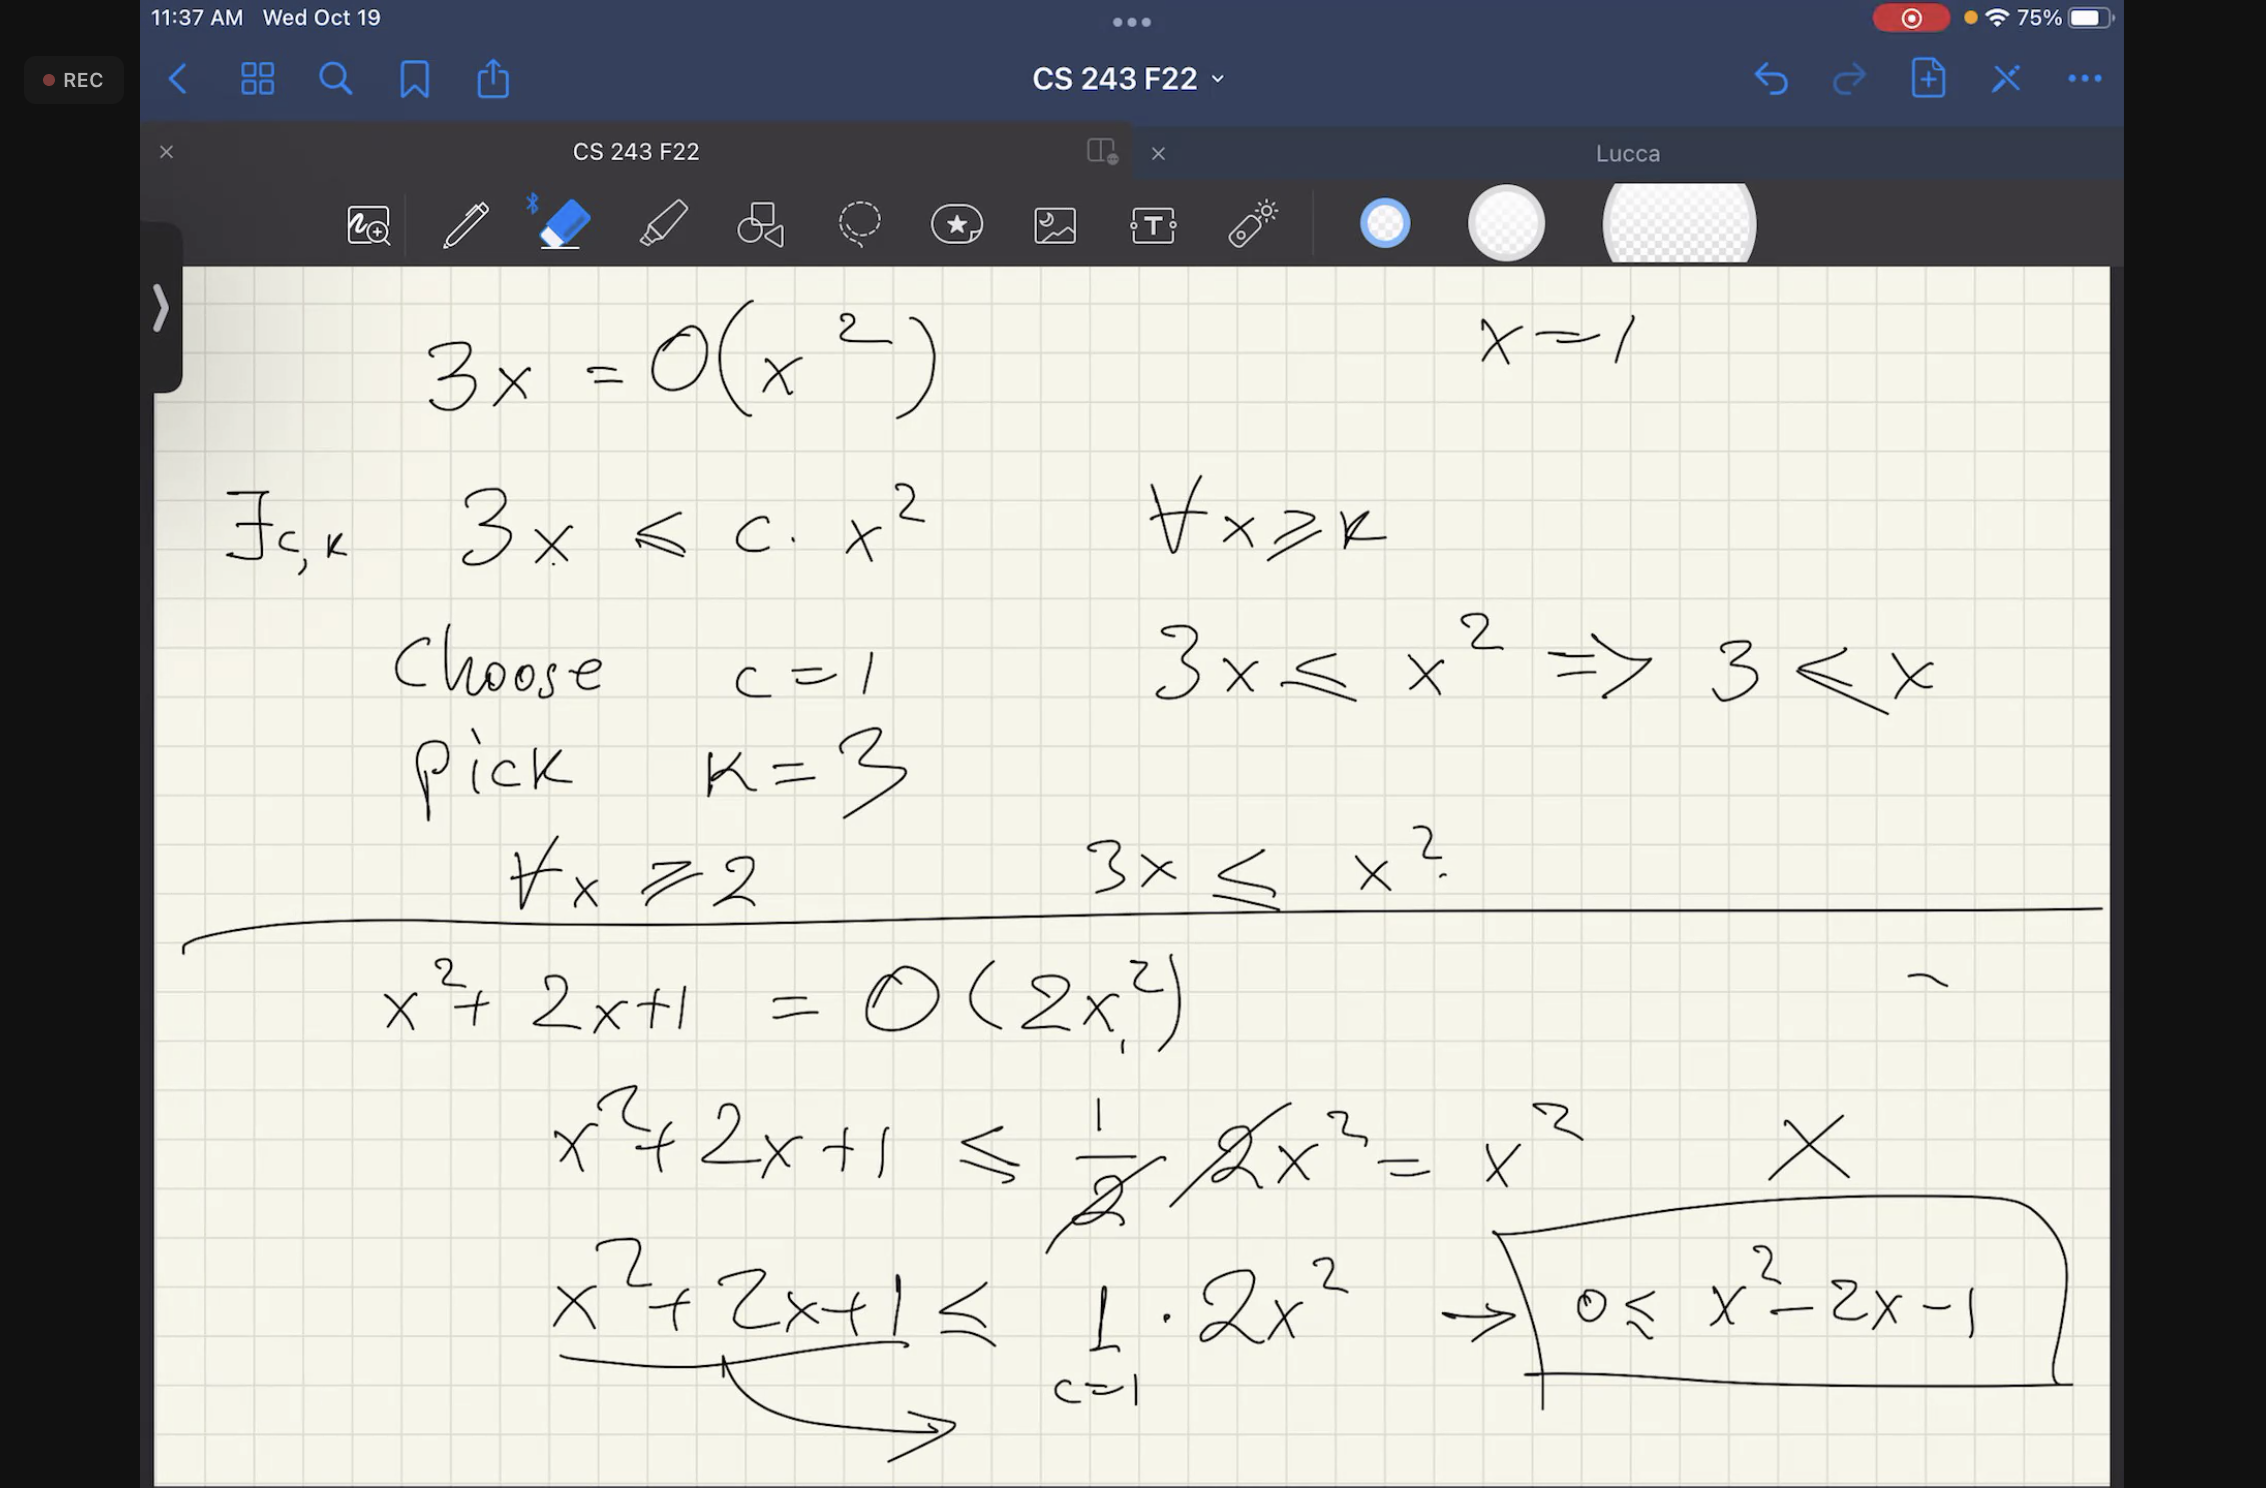 11:37 AM Wed Oct 19
75%
REC
CS 243 F22
CS 243 F22
Lucca
3x = O(x²)
x=1
∃c,k 3x ≤ c. x² ∀x≥k
Choose c=1 3x ≤ x² => 3 ≤ x
pick k=3
∀x ≥ 2 3x ≤ x²
x²+ 2x+1 = O(2x²)
x²+ 2x+1 ≤ 1/2 2x² = x² X
x²+ 2x+1 ≤ 1 · 2x² → 0 ≤ x² - 2x - 1
c=1